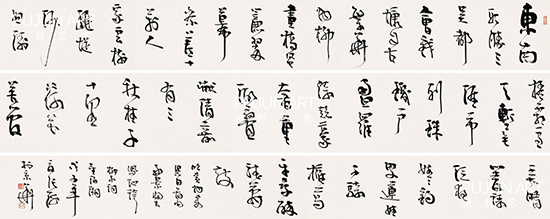 東南
形勝三
吳都
會錢
塘自古
繁華
烟柳
畫橋風
簾翠
幕
參差十
萬人
家雲樹
繞堤
沙
怒濤
捲霜雪
天塹無
涯市
列珠
璣戶
盈羅
綺競豪
奢重
湖疊
巘清嘉
有三
秋桂子
十里
荷花
羌管
弄晴
菱歌
泛夜
嬉嬉釣
叟蓮娃
千騎
擁高
牙
乘醉聽
簫鼓
吟賞烟霞
異日圖將
好景歸去
鳳池誇
柳永詞
望海潮